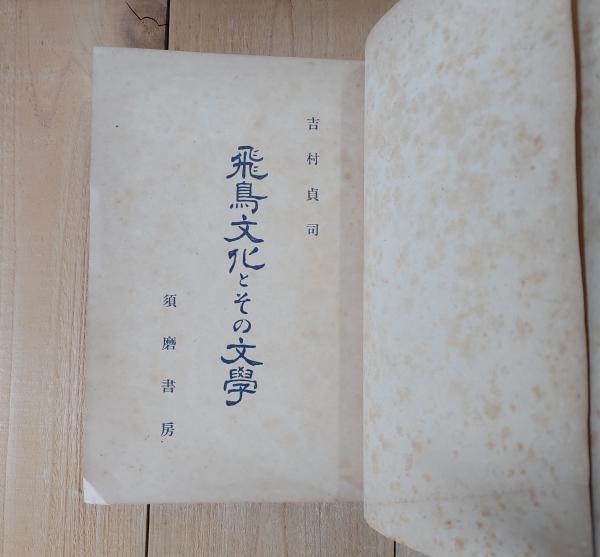 吉村貞司
飛鳥文化とその文學
須磨書房